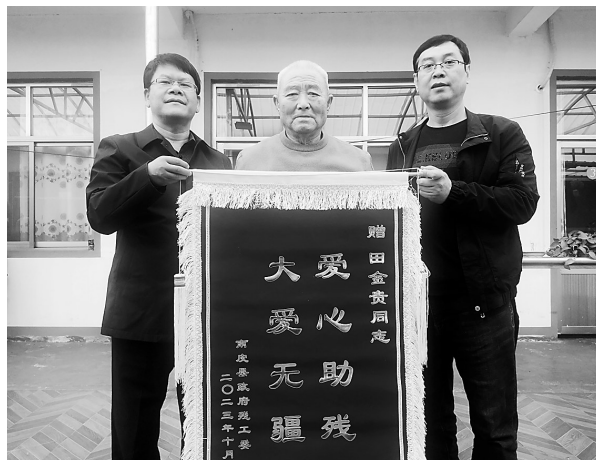 赠田金贵同志
爱心助残
大爱无疆
南皮县政府残工委
二〇二三年十月